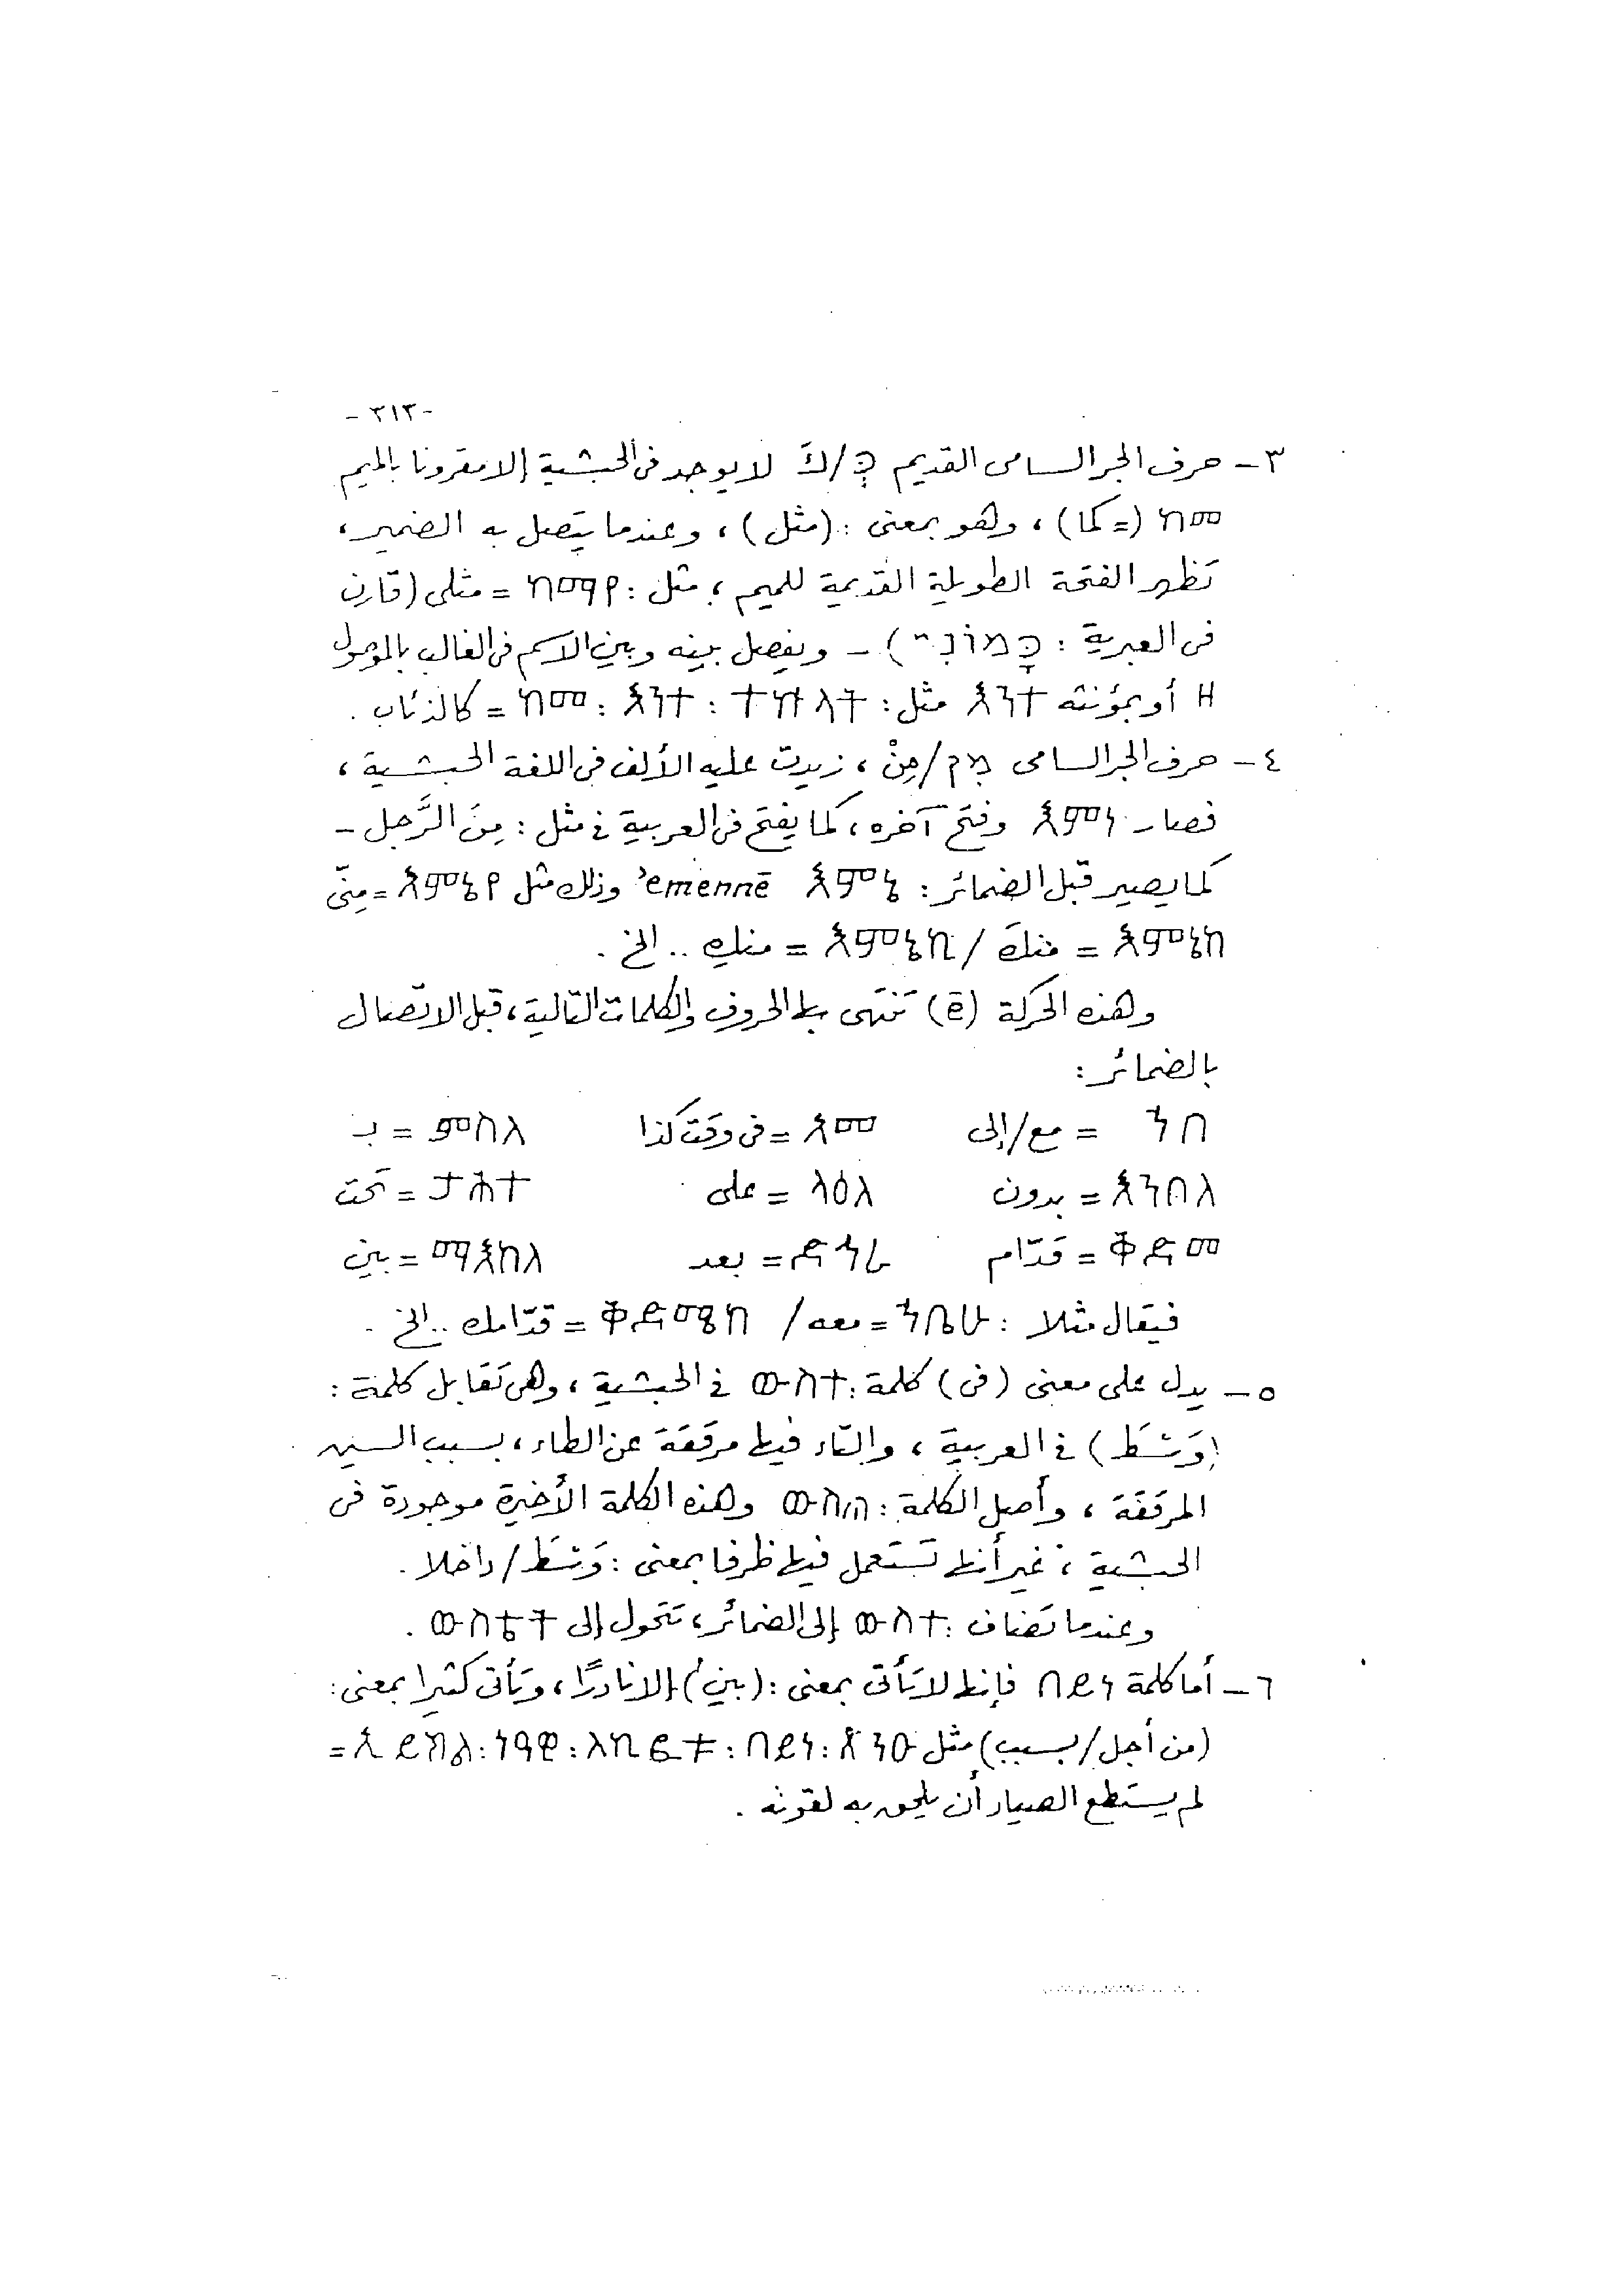 - ٣١٣ -
٣ - حرف الجر السامى القديم כְּ/كَ لا يوجد فى الحبشية إلا مقرونا بالميم
ከመ (= كما) ، وهو بمعنى : (مثل) ، وعندما يتصل به الضمير ،
تظهر الفتحة الطويلة القديمة للميم ، مثل : ከማየ = مثلى (قارن
فى العبرية : כָּמוֹנִי) – ويفصل بينه وبين الاسم فى الغالب بالموصول
ዘ أو بمؤنثه እንተ مثل : ከመ : እንተ : ተኵላት = كالذئاب .
٤ - حرف الجر السامى מִן/مِنْ ، زيدت عليه الألف فى اللغة الحبشية ،
فصار እምነ وفتح آخره ، كما يفتح فى العربية فى مثل : مِنَ الرَّجل –
كما يصير قبل الضمائر : እምኔ ʾemennē وذلك مثل እምኔየ = مِنّى
እምኔከ = منكَ / እምኔኪ = منكِ .. الخ .
وهذه الحركة (ē) تنتهى بها الحروف والكلمات التالية ، قبل الاتصال
بالضمائر :
ኀበ = مع/إلى አመ = فى وقت كذا ምስለ = بـ
እንበለ = بدون ላዕለ = على ታሕተ = تحت
ቅድመ = قدّام ድኅረ = بعد ማእከለ = بين
فيقال مثلا : ኀቤሁ = معه / ቅድሜከ = قدّامك .. الخ .
٥ - يدل على معنى (فى) كلمة : ውስተ فى الحبشية ، وهى تقابل كلمة :
(وَسْطَ) فى العربية ، والتاء فيها مرققة عن الطاء ، بسبب السين
المرققة ، وأصل الكلمة : ውስጠ وهذه الكلمة الأخيرة موجودة فى
الحبشية ، غير أنها تستعمل فيها ظرفا بمعنى : وَسْطَ/داخلا .
وعندما تضاف : ውስተ إلى الضمائر ، تتحول إلى ውስቴት .
٦ - أما كلمة በይነ فإنها لا تأتى بمعنى : (بين) إلا نادرًا ، وتأتى كثيرا بمعنى :
(من أجل/بسبب) مثل
لم يستطع الصياد أن يلحق به لقوته .